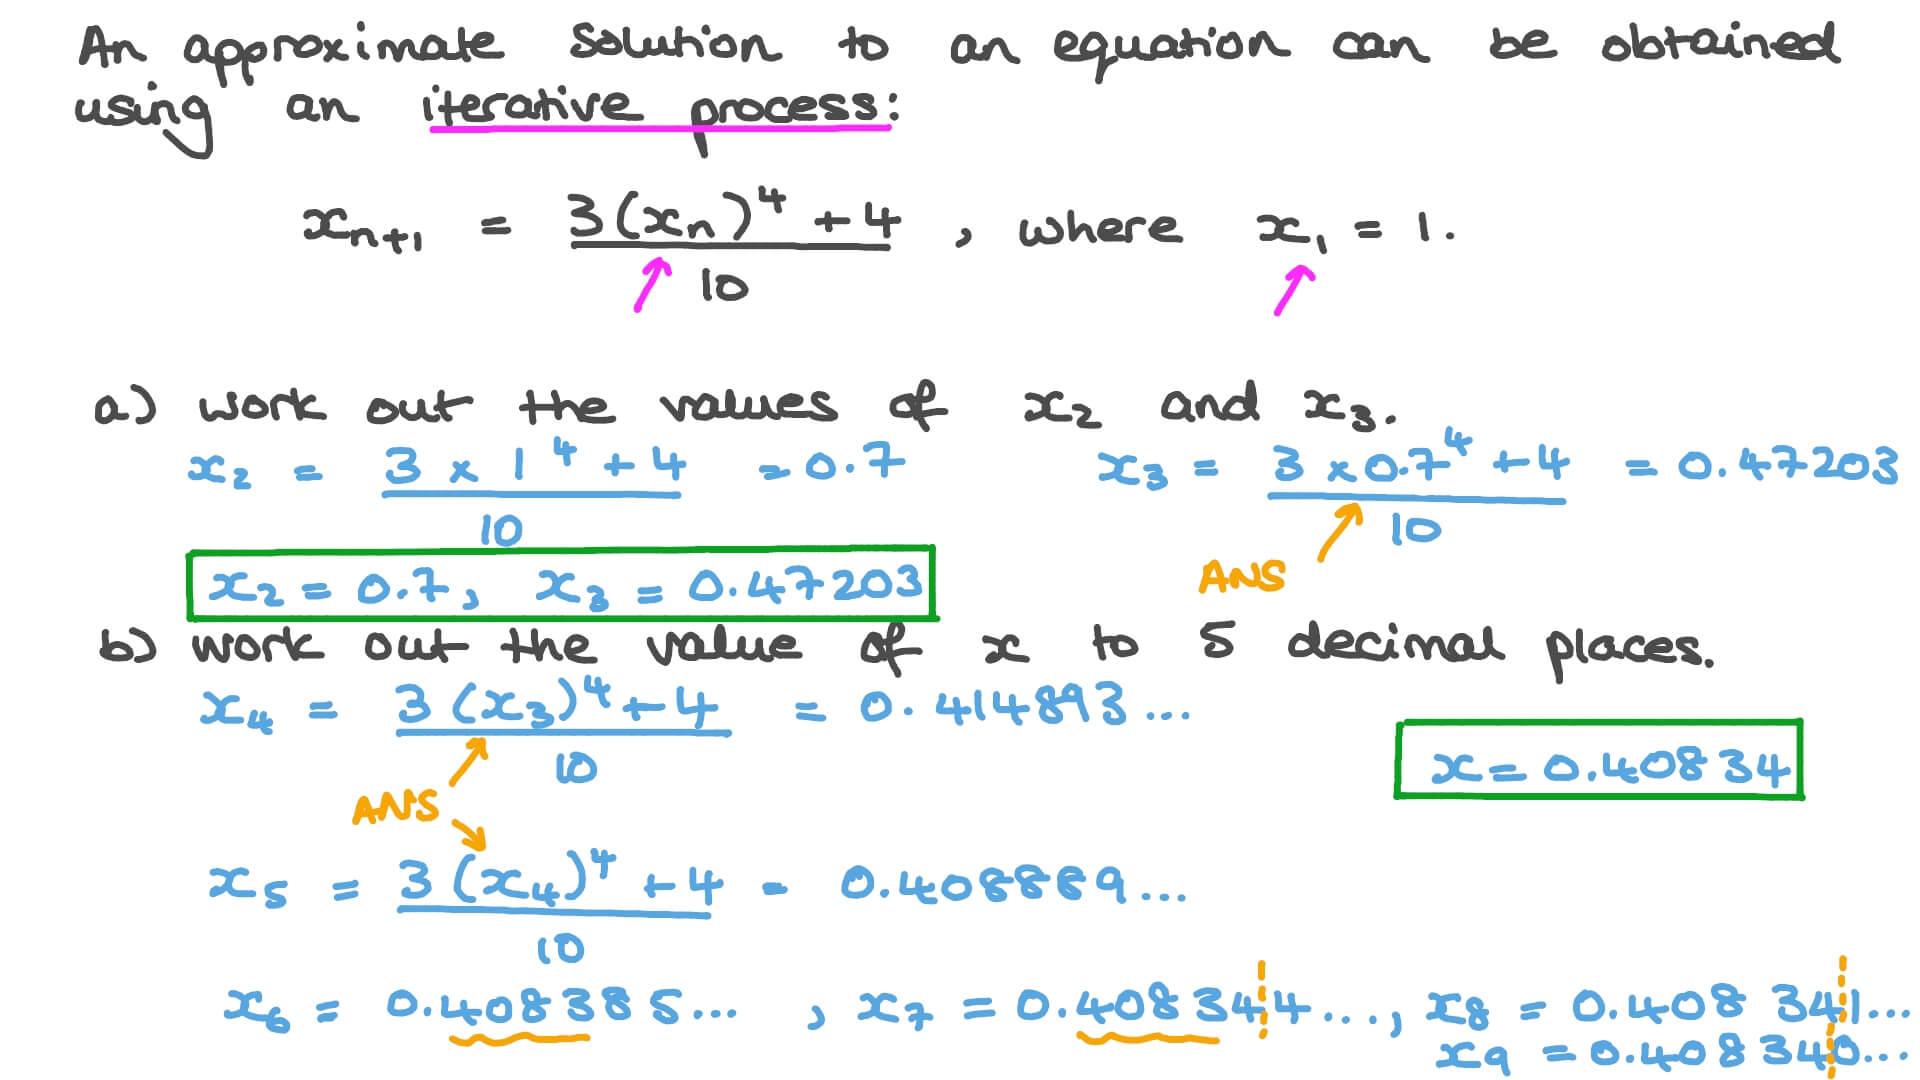 An approximate solution to an equation can be obtained
using an iterative process:
xₙ₊₁ = 3(xₙ)⁴ + 4 / 10 , where x₁ = 1.
a) work out the values of x₂ and x₃.
x₂ = 3 × 1⁴ + 4 / 10 = 0.7 x₃ = 3 × 0.7⁴ + 4 / 10 = 0.47203
ANS
x₂ = 0.7, x₃ = 0.47203
b) work out the value of x to 5 decimal places.
x₄ = 3(x₃)⁴ + 4 / 10 = 0.414893...
x = 0.40834
ANS
x₅ = 3(x₄)⁴ + 4 / 10 = 0.408889...
x₆ = 0.408385... , x₇ = 0.408344..., x₈ = 0.408341...
x₉ = 0.408340...